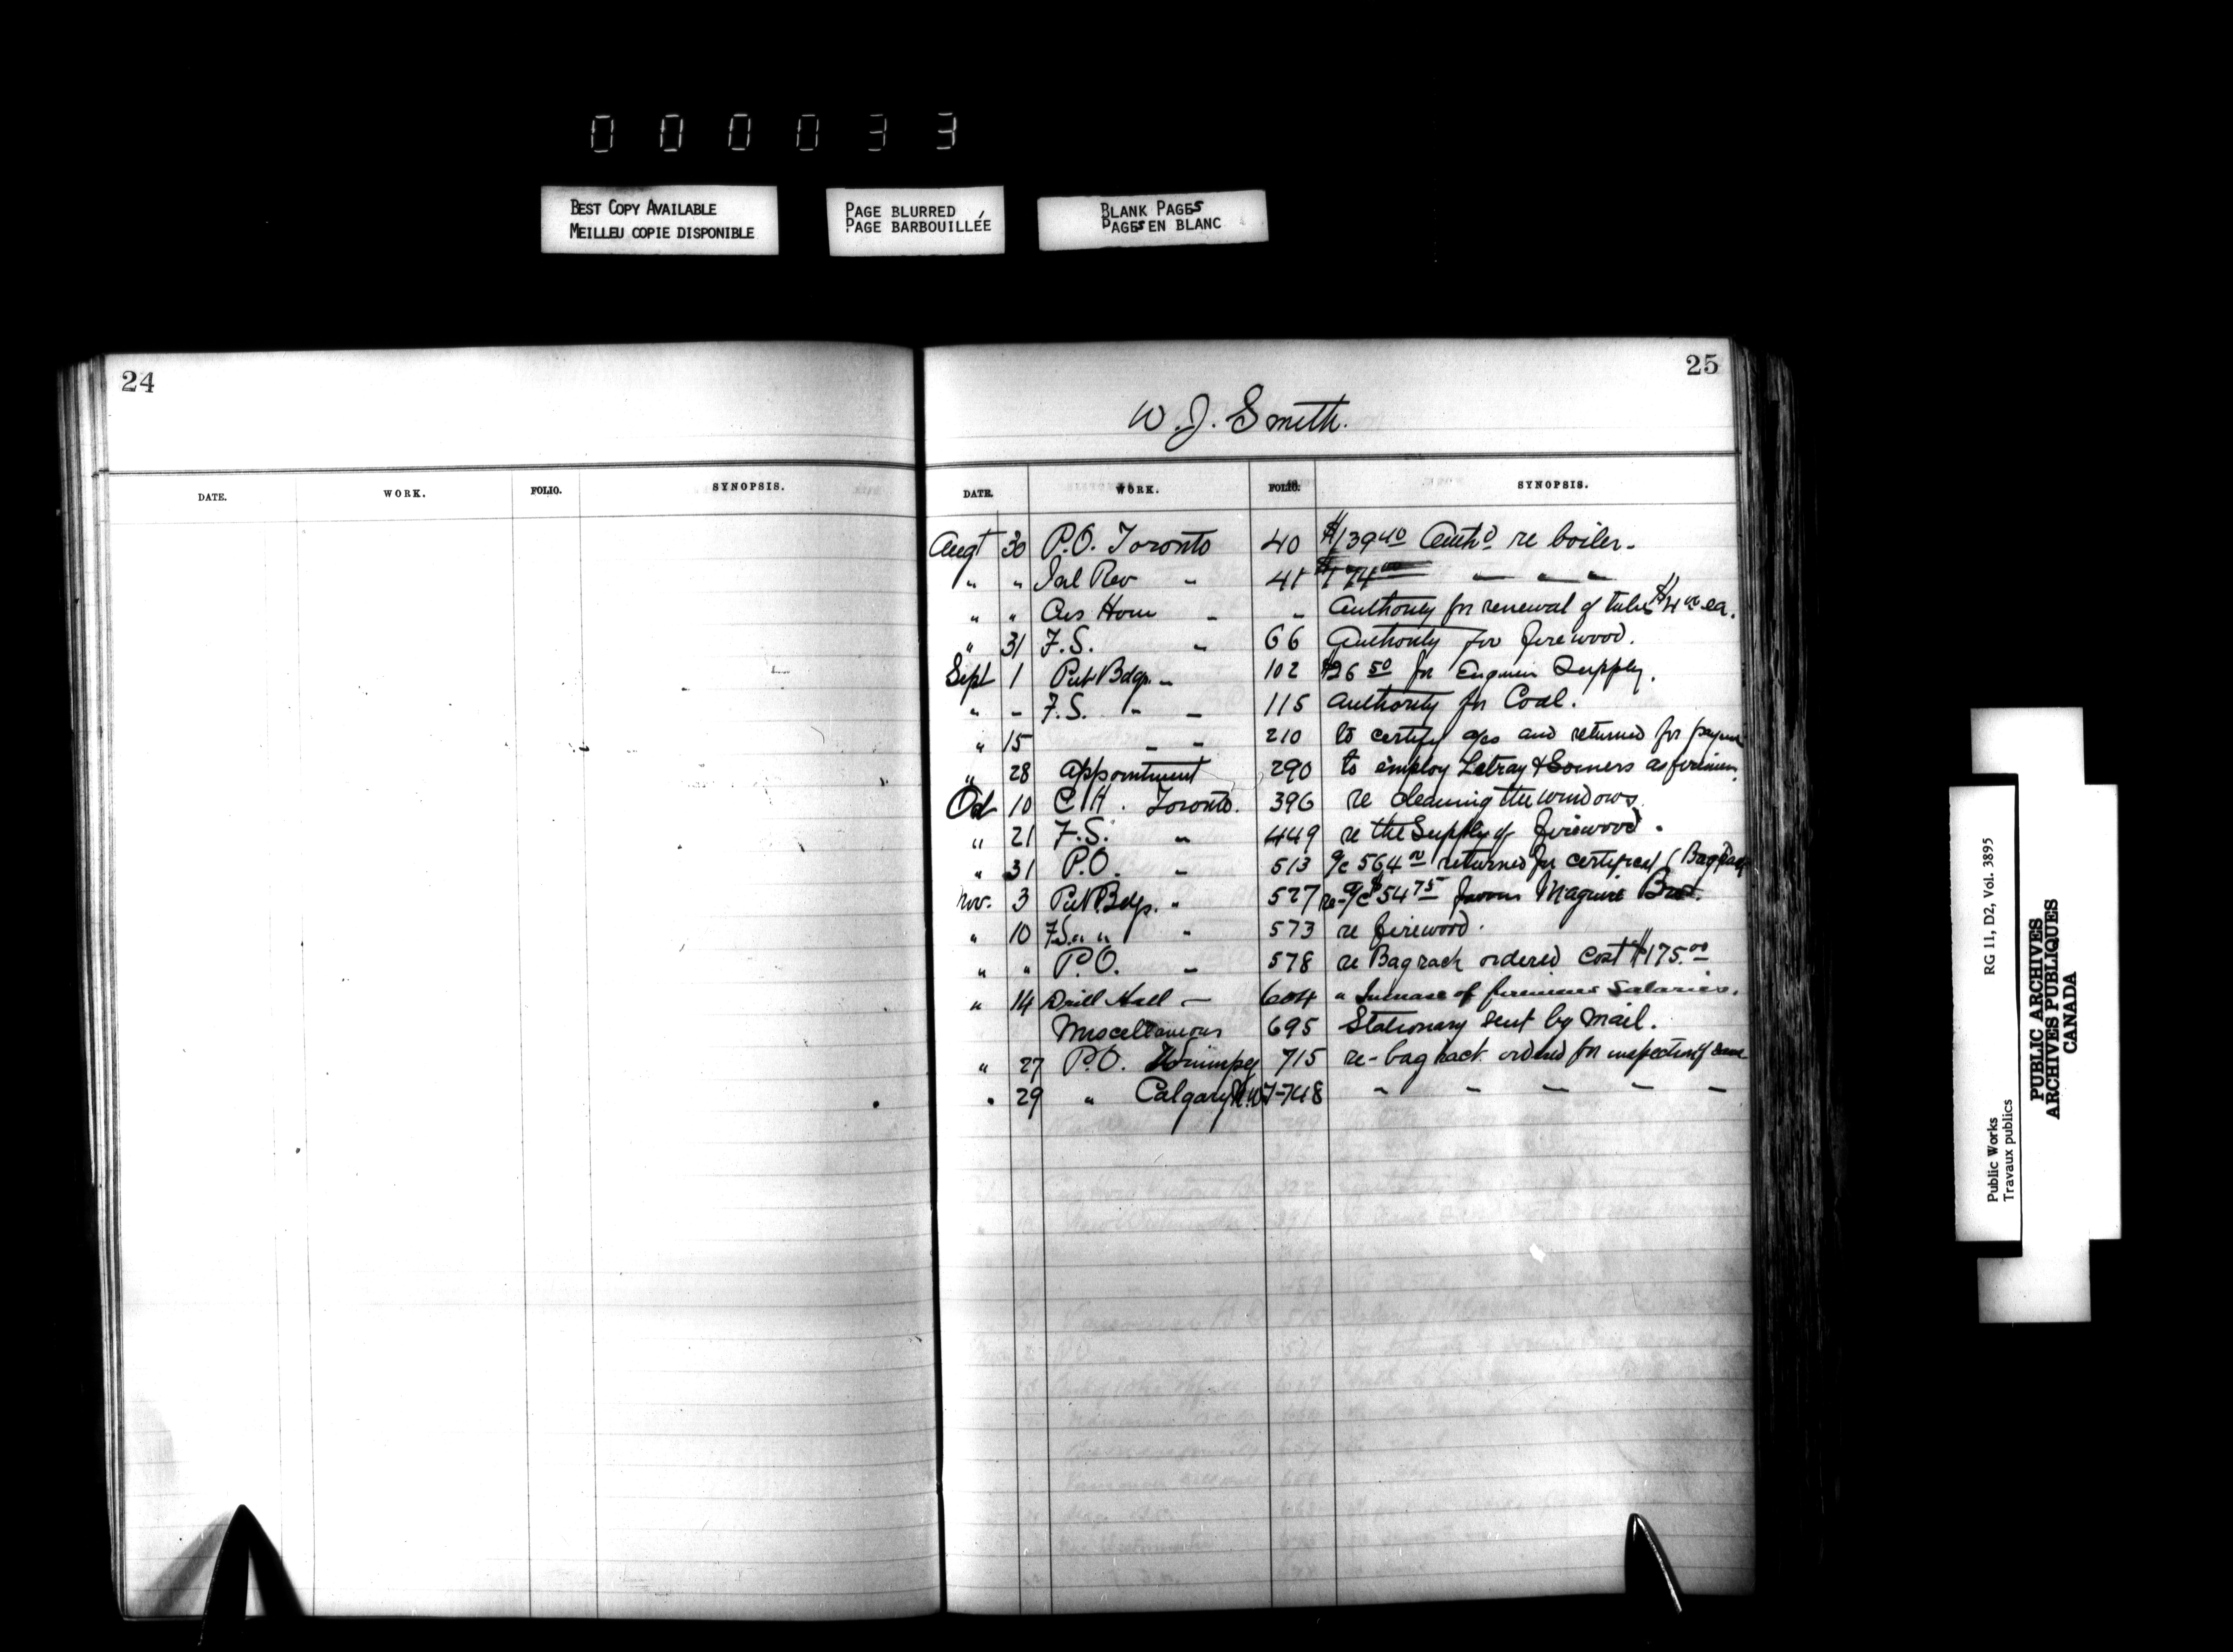 0 0 0 0 3 3
BEST COPY AVAILABLE
MEILLEU COPIE DISPONIBLE
PAGE BLURRED
PAGE BARBOUILLÉE
BLANK PAGES
PAGES EN BLANC
24
DATE. WORK. FOLIO. SYNOPSIS.
25
W. J. Smith.
DATE. WORK. FOLIO. SYNOPSIS.
Augt 30 P.O. Toronto 40 $139 40 Authy re boiler.
" " Inl Rev " 41 $174 00 " " "
" " Cus House " " Authority for renewal of tubes $4 00 ea.
" 31 F.S. " 66 Authority for firewood.
Sept 1 Pub Bdgs. " 102 $26 50 for Engineer Supply.
" " F.S. " " 115 Authority for Coal.
" 15 " " 210 to certify a/cs and returned for
" 28 Appointment 290 to employ & Somers as firemen
Oct 10 C.H. Toronto. 396 re cleaning the windows
" 21 F.S. " 449 re the Supply of firewood.
" 31 P.O. " 513 a/c 564 returned for (Bag
Nov. 3 Pub Bdgs. " 527 re a/c $54 75 favour Maguire Bros.
" 10 F.S. " " " 573 re firewood.
" " P.O. " 578 re Bag rack ordered Cost $175.00
" 14 Drill Hall " 604 " Increase of firemens Salaries.
Miscellaneous 695 Stationary sent by mail.
" 27 P.O. Winnipeg 715 re-bag rack ordered for inspection of same
" 29 " Calgary N.W.T. 748 " " " " "
Public Works
Travaux publics
RG 11, D2, Vol. 3895
PUBLIC ARCHIVES
ARCHIVES PUBLIQUES
CANADA